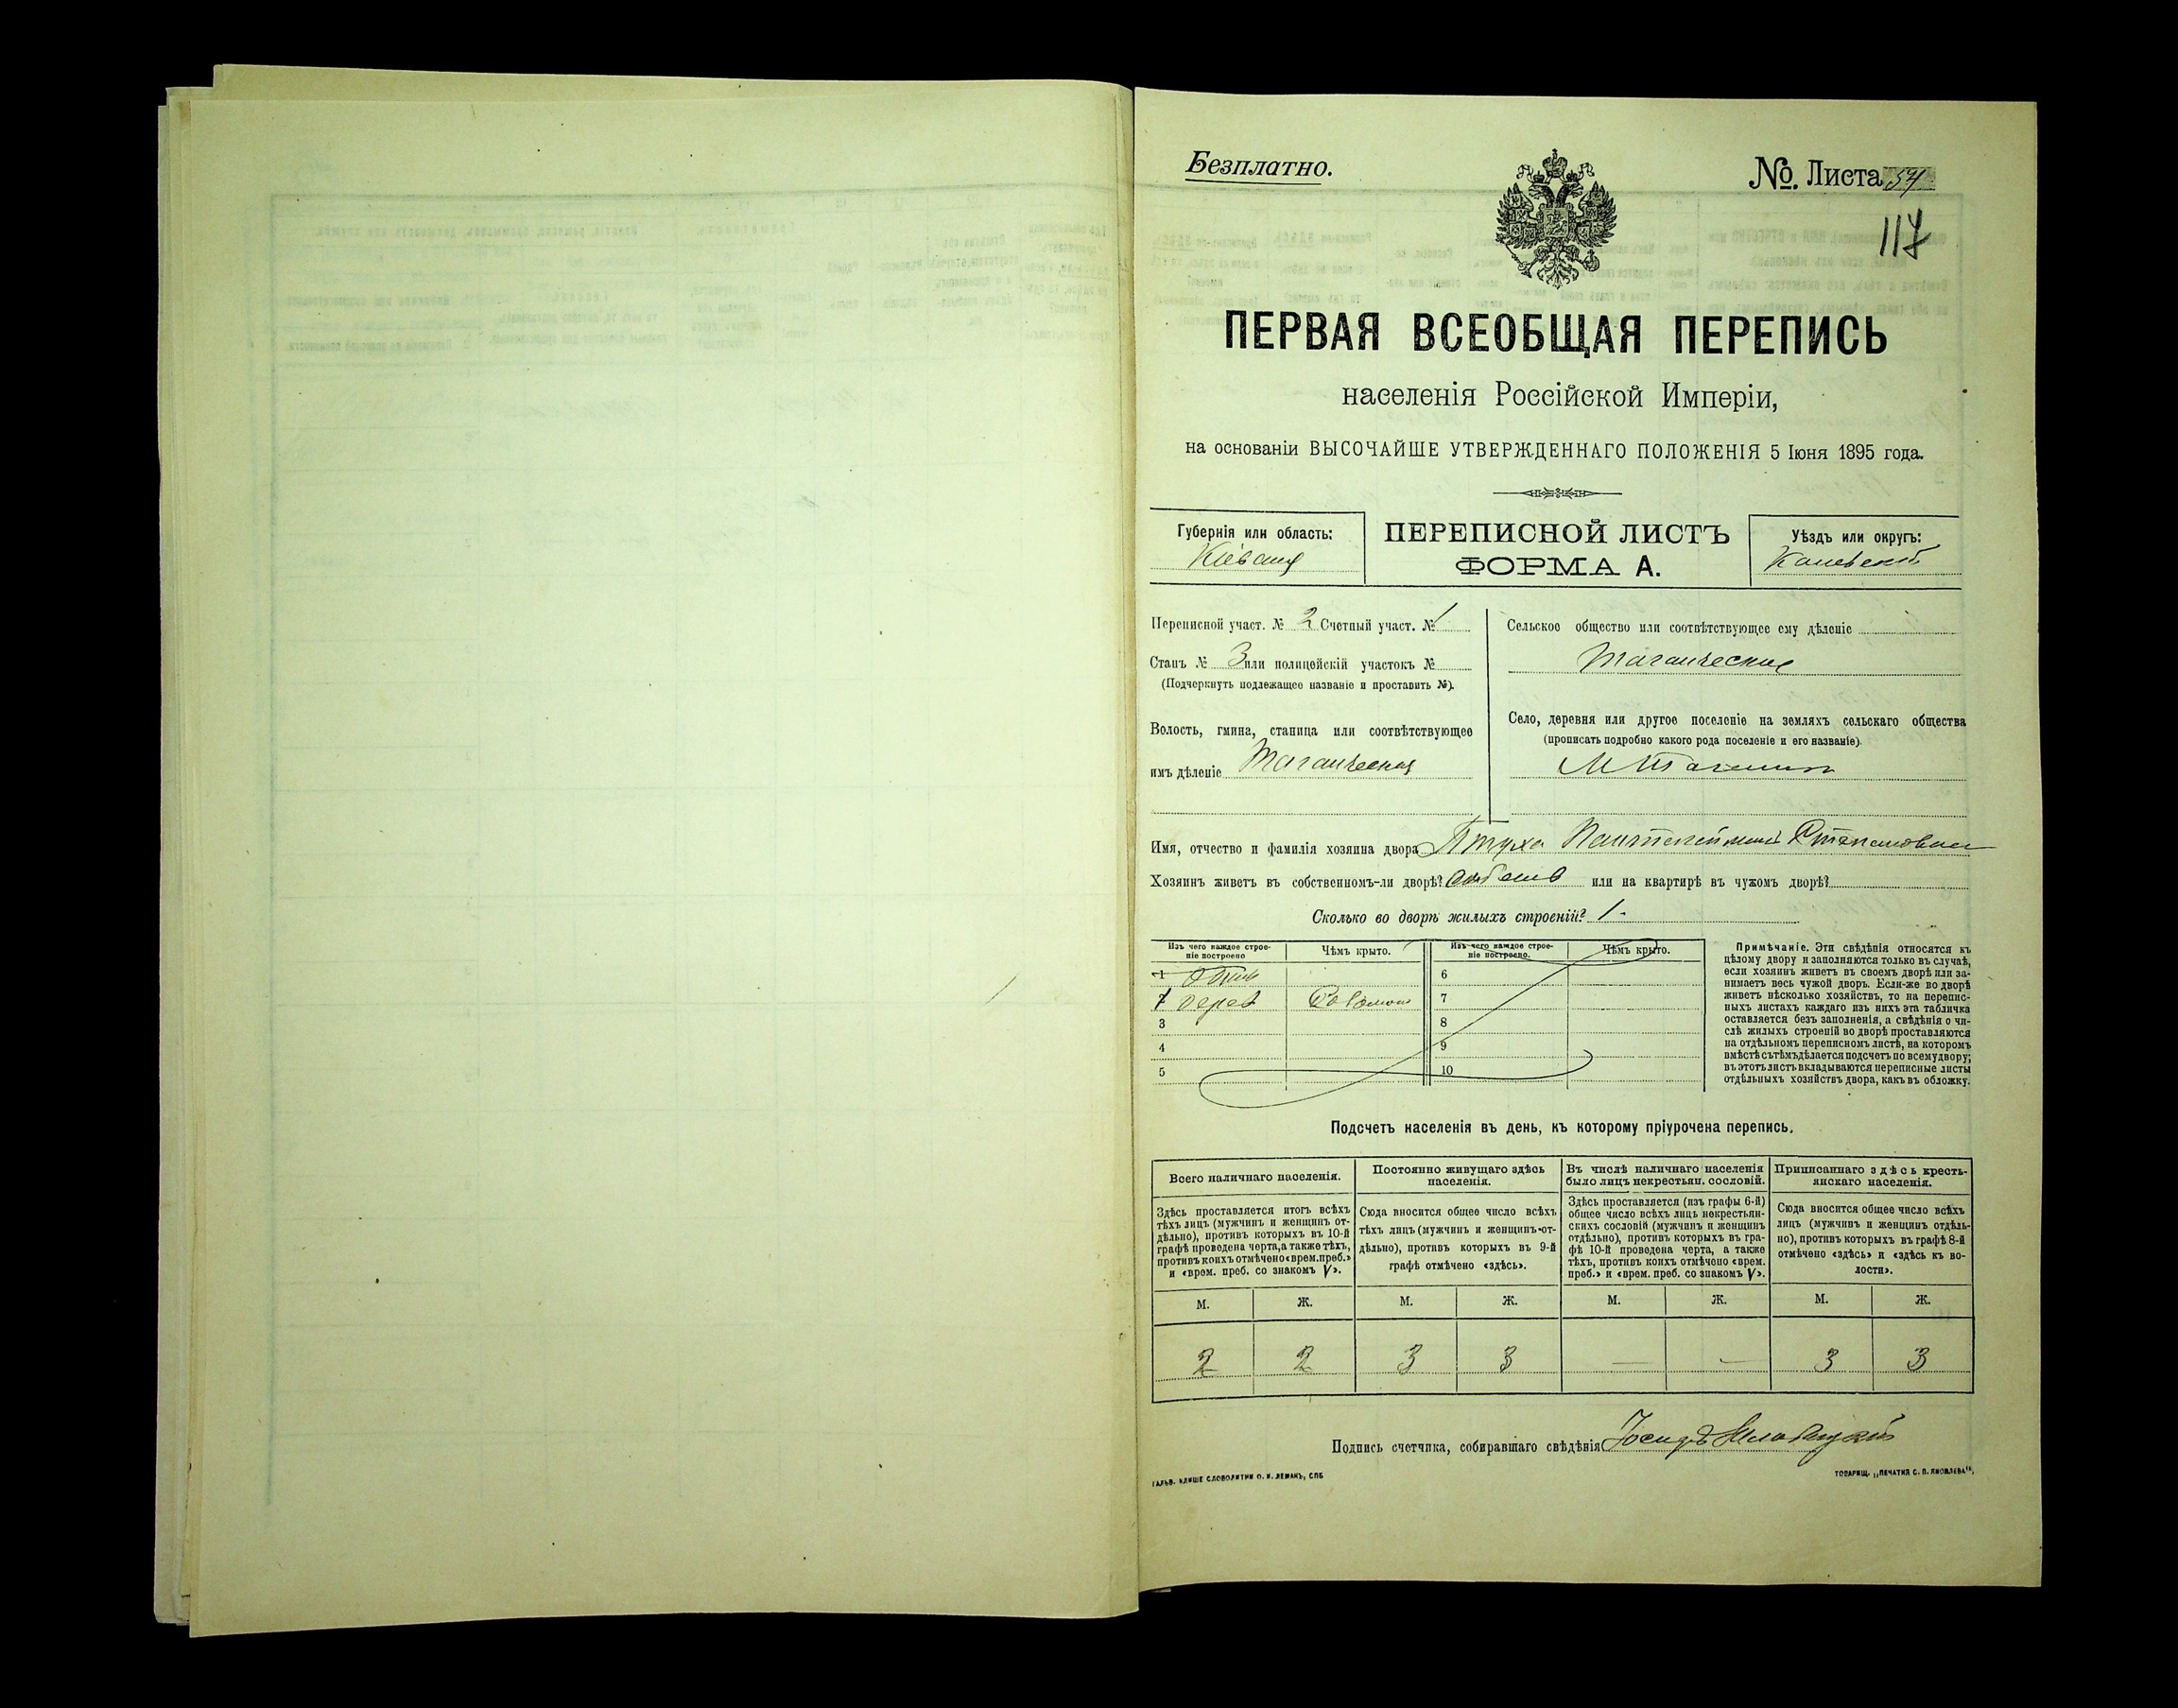 Безплатно.
№. Листа 57
117
ПЕРВАЯ ВСЕОБЩАЯ ПЕРЕПИСЬ
населенія Россійской Имперіи,
на основаніи ВЫСОЧАЙШЕ УТВЕРЖДЕННАГО ПОЛОЖЕНІЯ 5 Іюня 1895 года.
Губернія или область:
Кіевская
ПЕРЕПИСНОЙ ЛИСТЪ
ФОРМА А.
Уѣздъ или округъ:
Каневскій
Переписной участ. № 2 Счетный участ. № 1
Станъ № 3 или полицейскій участокъ №
(Подчеркнуть подлежащее названіе и проставить №).
Волость, гмина, станица или соотвѣтствующее
имъ дѣленіе Таганчская
Сельское общество или соотвѣтствующее ему дѣленіе
Таганческое
Село, деревня или другое поселеніе на земляхъ сельскаго общества
(прописать подробно какого рода поселеніе и его названіе).
М Таганча
Имя, отчество и фамилія хозяина двора Птуха Пантелеймонъ Степановичъ
Хозяинъ живетъ въ собственномъ-ли дворѣ? или на квартирѣ въ чужомъ дворѣ?
Сколько во дворѣ жилыхъ строеній? 1 -
Изъ чего каждое строе-
ніе построено
Чѣмъ крыто.
Изъ чего каждое строе-
ніе построено.
Чѣмъ крыто.
1
6
дерев Соломою
7
3
8
4
9
5
10
Примѣчаніе. Эти свѣдѣнія относятся къ
цѣлому двору и заполняются только въ случаѣ,
если хозяинъ живетъ въ своемъ дворѣ или за-
нимаетъ весь чужой дворъ. Если-же во дворѣ
живетъ нѣсколько хозяйствъ, то на перепис-
ныхъ листахъ каждаго изъ нихъ эта табличка
оставляется безъ заполненія, а свѣдѣнія о чи-
слѣ жилыхъ строеній во дворѣ проставляются
на отдѣльномъ переписномъ листѣ, на которомъ
вмѣстѣ съ тѣмъ дѣлается подсчетъ по всему двору;
въ этотъ листъ вкладываются переписные листы
отдѣльныхъ хозяйствъ двора, какъ въ обложку.
Подсчетъ населенія въ день, къ которому пріурочена перепись.
Всего наличнаго населенія.
Постоянно живущаго здѣсь
населенія.
Въ числѣ наличнаго населенія
было лицъ некрестьян. сословій.
Приписаннаго здѣсь кресть-
янскаго населенія.
Здѣсь проставляется итогъ всѣхъ
тѣхъ лицъ (мужчинъ и женщинъ от-
дѣльно), противъ которыхъ въ 10-й
графѣ проведена черта, а также тѣхъ,
противъ коихъ отмѣчено «врем. преб.»
и «врем. преб. со знакомъ V».
Сюда вносится общее число всѣхъ
тѣхъ лицъ (мужчинъ и женщинъ от-
дѣльно), противъ которыхъ въ 9-й
графѣ отмѣчено «здѣсь».
Здѣсь проставляется (изъ графы 6-й)
общее число всѣхъ лицъ некрестьян-
скихъ сословій (мужчинъ и женщинъ
отдѣльно), противъ которыхъ въ гра-
фѣ 10-й проведена черта, а также
тѣхъ, противъ коихъ отмѣчено «врем.
преб.» и «врем. преб. со знакомъ V».
Сюда вносится общее число всѣхъ
лицъ (мужчинъ и женщинъ отдѣль-
но), противъ которыхъ въ графѣ 8-й
отмѣчено «здѣсь» и «здѣсь къ во-
лости».
М. Ж. М. Ж. М. Ж. М. Ж.
2 2 3 3 — — 3 3
Подпись счетчика, собиравшаго свѣдѣнія Іосифъ
ГАЛЬВ. КЛИШЕ СЛОВОЛИТНИ О. И. ЛЕМАНЪ, СПБ
ТОВАРИЩ. „ПЕЧАТНЯ С. П. ЯКОВЛЕВА“.